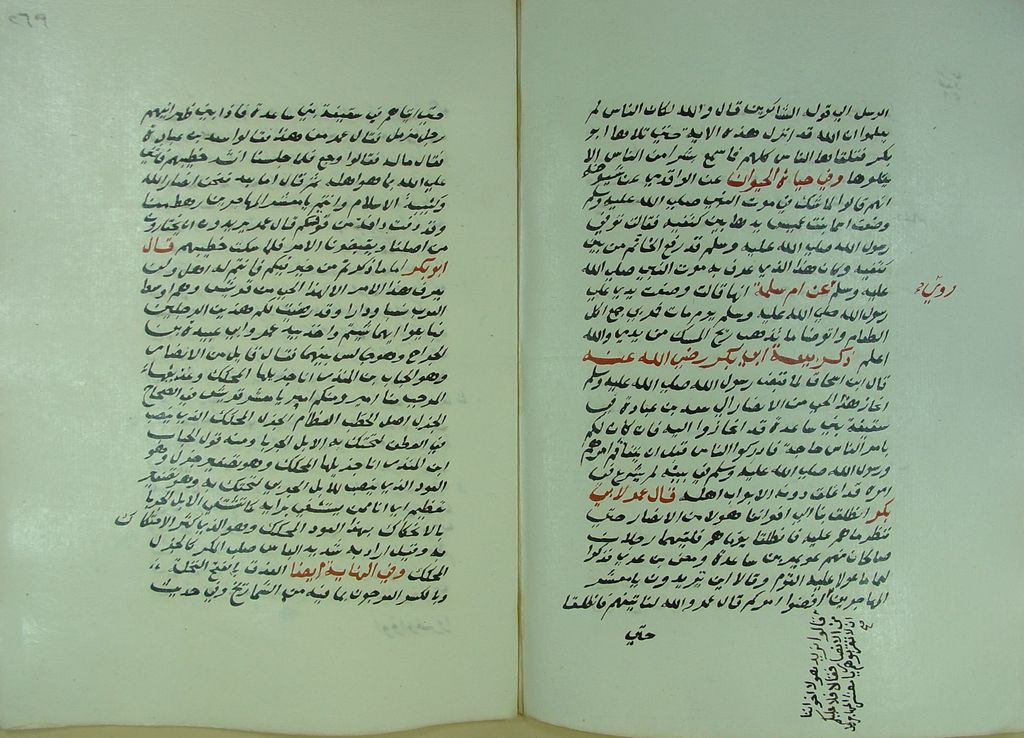 الرسل الي قوله الشاكرين قال والله لكان الناس لم
يعلموا ان الله قد انزل هذه الاية حتي تلاها ابو
بكر فتلقاها الناس كلهم فما سمع بشر من الناس الا
يتلوها وفي حياة الحيوان عن الواقدي عن شيوخه
انهم قالوا لما شك في موت النبي صلي الله عليه وسلم
وضعت اسما بنت عميس يدها بين كتفيه فقالت توفي
رسول الله صلي الله عليه وسلم قد رفع الخاتم من بين
كتفيه وكان هذا الذي عرف به موت النبي صلي الله
عليه وسلم عن ام سلمة انها قالت وضعت يدي علي
رسول الله صلي الله عليه وسلم يوم مات فمر بي جمع اكل
الطعام واتوضا ما يذهب ريح المسك من يدي والله
اعلم ذكر بيعة ابي بكر رضي الله عنه
قال ابن اسحاق لما قبض رسول الله صلي الله عليه وسلم
انحاز هذا الحي من الانصار الي سعد بن عبادة في
سقيفة بني ساعدة قد انحازوا اليه فان كان لكم
بامر الناس حاجة فادركوا الناس قبل ان يتفاقم امرهم
ورسول الله صلي الله عليه وسلم في بيته لم يفرغ من
امره قد اغلق دونه الابواب اهله قال عمر لابي
بكر انطلق بنا الي اخواننا هولا من الانصار حتي
ننظر ما هم عليه فانطلقا يؤماهم فلقيهما رجلان
صالحان منهم عويم بن ساعدة ومعن بن عدي فذكرا
لهما ما تمالا عليه القوم وقالا اين تريدون يا معشر
المهاجرين اقضوا امركم قال عمر والله لناتينهم فانطلقا
حتي
قالوا نريد هولا اخواننا
من الانصار فقالا فلا عليكم
ان لا تقربوهم يا معشر المهاجرين
صح
روي
٢٦٩
حتي اتاهم في سقيفة بني ساعدة فاذا بين ظهرانيهم
رجل مزمل فقال عمر من هذا فقالوا سعد بن عبادة
فقال ماله فقالوا وجع فلما جلسنا تشهد خطيبهم فاثني
علي الله بما هو اهله ثم قال اما بعد فنحن انصار الله
وكتيبة الاسلام وانتم يا معشر المهاجرين رهط منا
وقد دفت دافة من قومكم قال عمر يريدون ان يختازونا
من اصلنا ويغصبونا الامر فلما سكت خطيبهم قال
ابو بكر اما ما ذكرتم من خير فيكم فانتم له اهل ولن
يعرف هذا الامر الا لهذا الحي من قريش وهم اوسط
العرب نسبا ودارا وقد رضيت لكم هذين الرجلين
فبايعوا ايهما شيتم واخذ بيد عمر وابي عبيدة بن
الجراح وهو جالس بينهما فقال قايل من الانصار
وهو الحباب بن المنذر انا جذيلها المحكك وعذيقها
المرجب منا امير ومنكم امير يا معشر قريش في الصحاح
الجذل اصل الحطب العظام الجذل المحكك الذي ينصب
في العطن لتحتك به الابل الجربا ومنه قول الحباب
ابن المنذر انا جذيلها المحكك وهو تصغير جذل وهو
العود الذي ينصب للابل الجربي لتحتك به وهو تصغير
تعظيم اي انا ممن يستشفي برايه كما تستشفي الابل الجربا
بالاحتكاك بهذا العود المحكك وهو الذي كثر الاحتكاك
به وقيل اراد به شديد الباس صلب المكسر كالجذل
المحكك وفي النهاية ايضا العذق بالفتح النخلة
وبالكسر العرجون بما فيه من الشماريخ وفي حديث